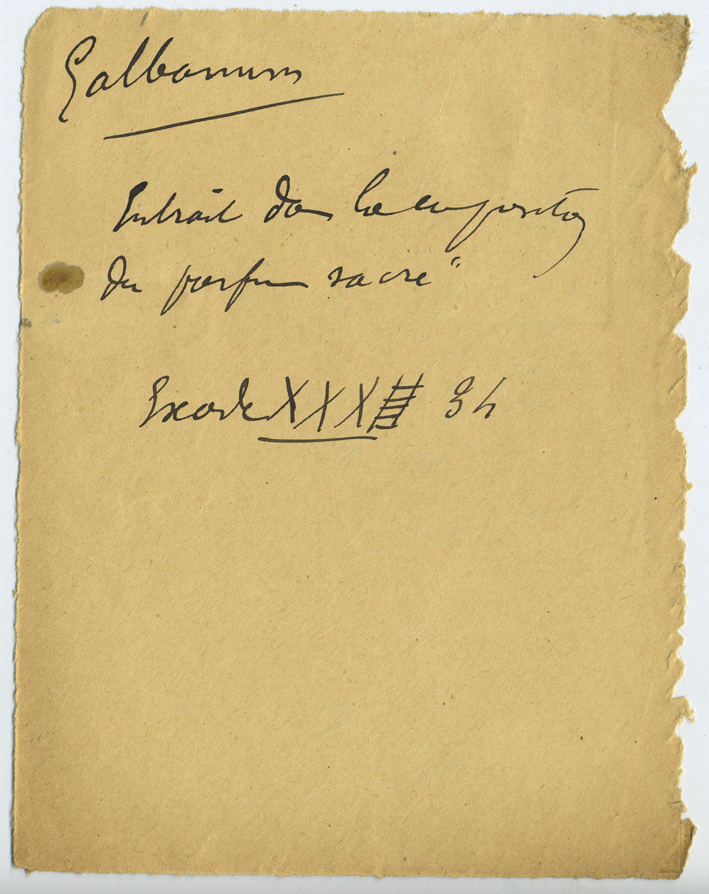 Galbanum
Entrait dans la composition
du parfum sacré"
Exode XXX 34